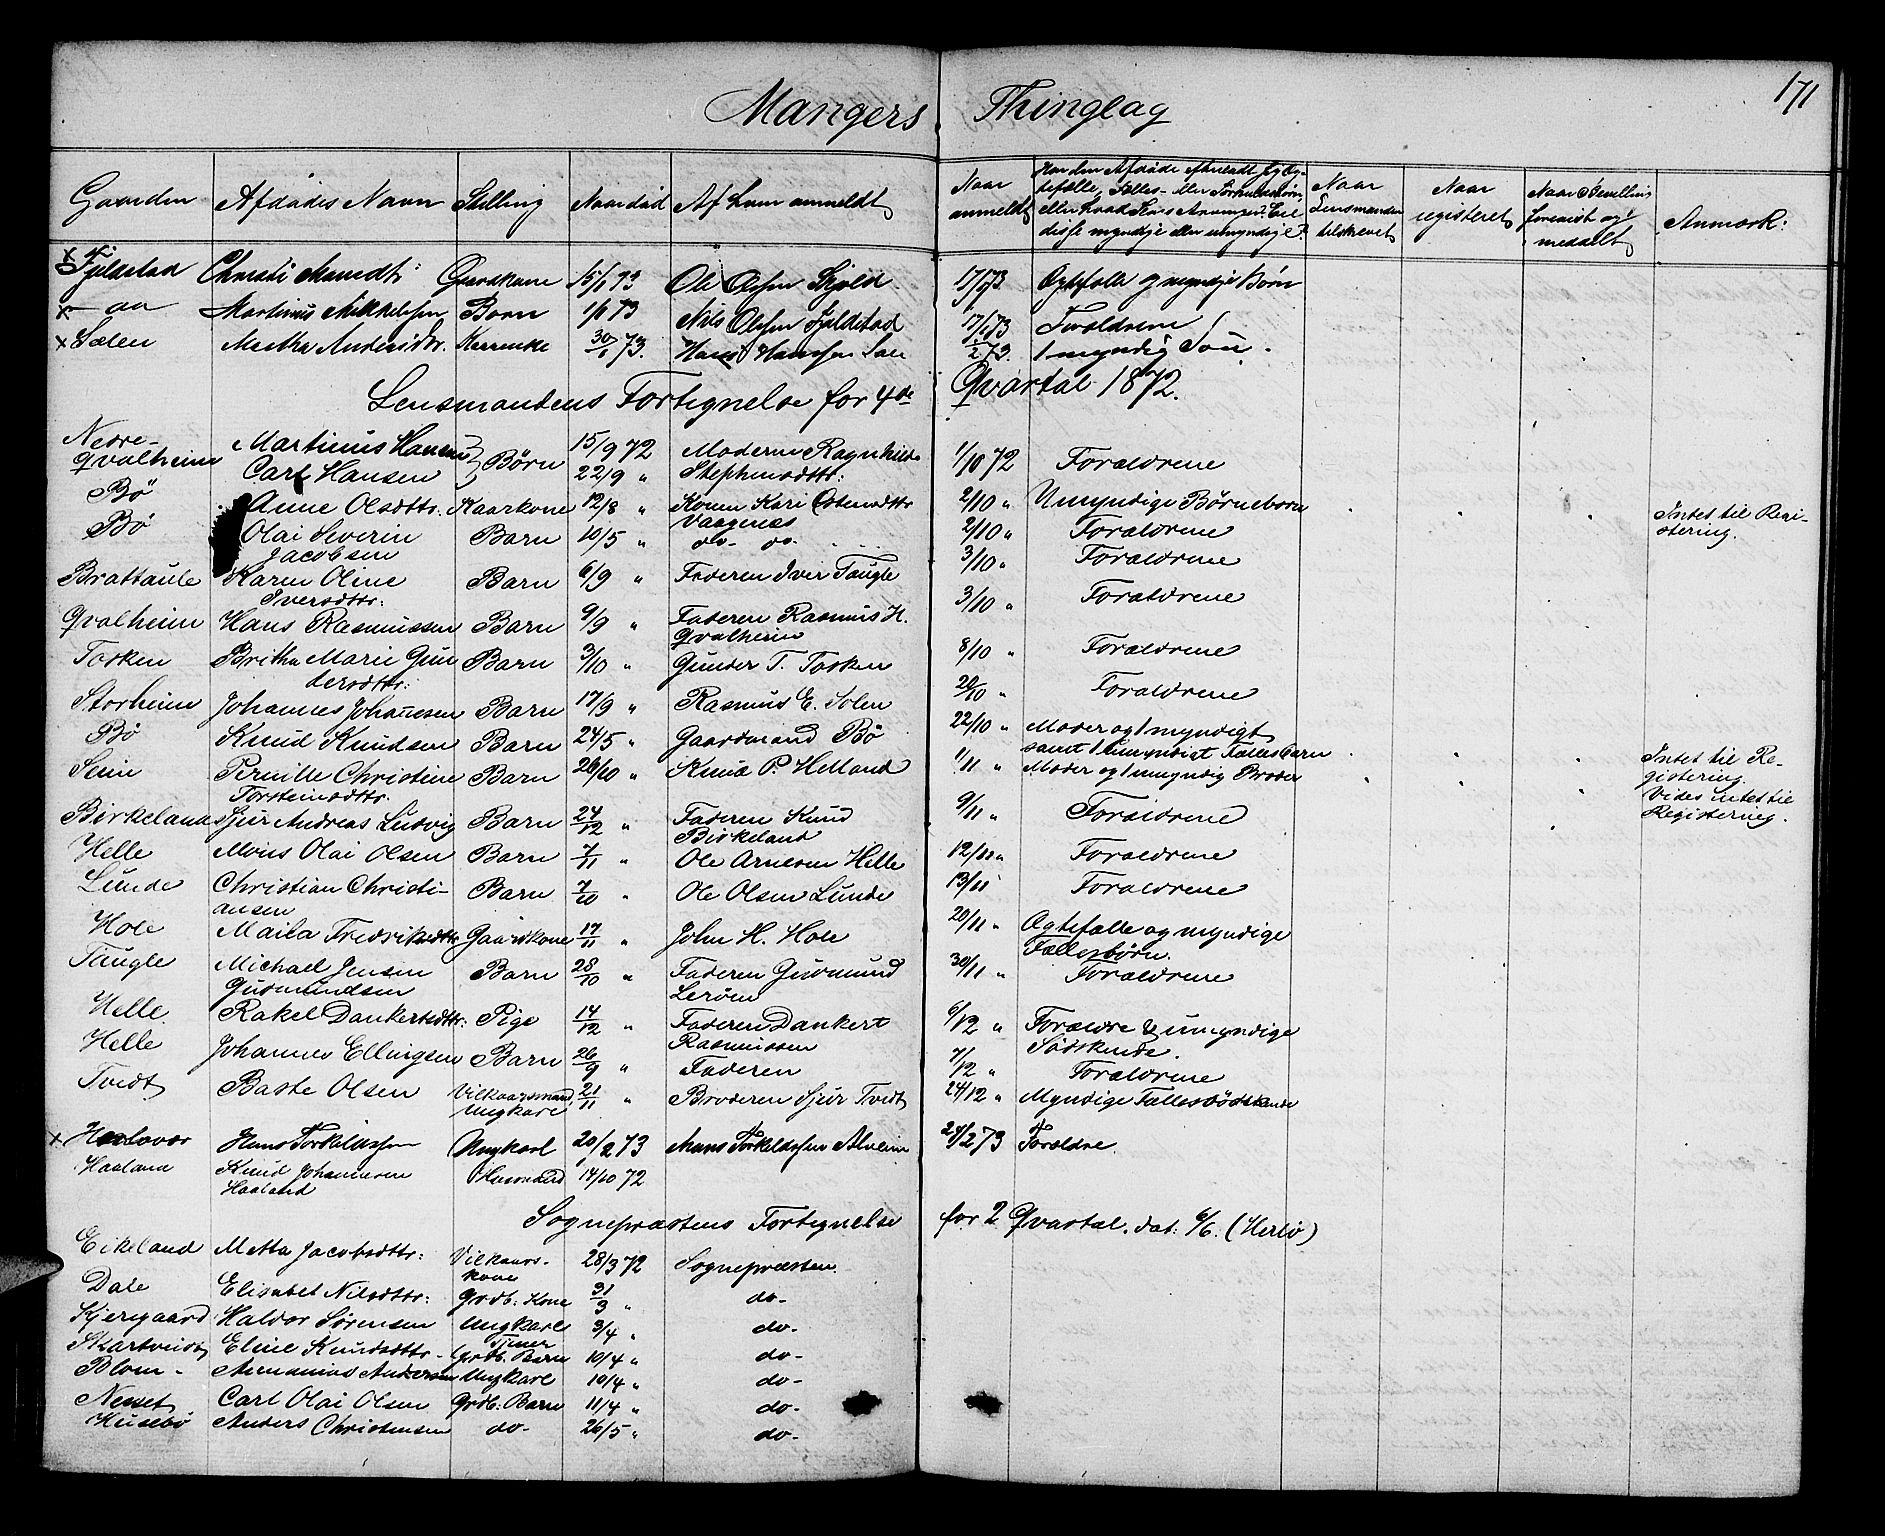 171
Mangers Thinglag
Gaarden | Afdødes Navn | Stilling | Naar død | Af hvem anmeldt | Naar anmeldt | Har den Afdøde efterladt sig Ægtefælle, Fælles- eller Særkuldsbørn, eller hvad Livs Arvinger? Ere disse myndige eller umyndige? | Naar Lensmanden tilskrevet | Naar registeret | Naar Bevilling forevist og meddelt | Anmærk:
x Fjeldstad | Christi Amundt: | Gaardkone | 15/1 73 | Ole Olsen Skjold | 17/1 73 | Ægtefælle 7 myndige Børn
x — aa | Martinus Mikkelsen | Barn | 1/1 73 | Nils Olsen Fjeldstad | 17/1 73 | Forældrene
x Sælen | Martha Andersdtr. | 30/1 73. | Hans Hansen Sæl | 2 73. | 1 myndig Søn.
Lensmandens Fortegnelse for 4de Qvartal 1872.
Nedre-Qvalheim | Martinus Hansen | Børn | 15/9 72 | Moderen Ragnhilde | 1/10 72 | Forældrene
Carl Hansen | 22/9 " | Stephensdttr:
Bö | Anne Olsdttr. | Kaarkone | 12/8 " | Konen Kari Ostensdttr Vaagenes | 2/10 " | Umyndige Börneborn | Intet til Registering.
Bö | Olai Severin Jacobsen | Barn | 10/5 " | do- do- | 2/10 " | Forældrene
3/10 " | Forældrene
Brattaule | Karen Oline Iversdttr: | Barn | 6/9 " | Faderen Iver Taugle | 3/10 " | Forældrene
Qvalheim | Hans Rasmussen | Barn | 9/9 " | Faderen Rasmus H. Qvalheim
Tosken | Britha Marie Gundersdttr: | Barn | 3/10 " | Gunder T. Tosken | 8/10 " | Forældrene
Storheim | Johannes Johannesen | Barn | 17/9 " | Rasmus E. Solen | 20/10 " | Forældrene
Bö | Knud Knudsen | Barn | 24/5 " | Gaardmand Bö | 22/10 " | Moder og 1 myndigt samt 1 umyndigt Fællesbarn | Intet til Registering.
Seim | Pernille Christine Torsteinsdttr. | Barn | 26/10 " | Knud P. Helland | 1/11 " | Moder og 1 umyndig Broder | Vides intet til Registering.
Birkeland | Sjur Andreas Ludvig | Barn | 24/12 " | Faderen Knud Birkeland | 9/11 " | Forældrene
Helle | Mons Olai Olsen | Barn | 7/11 " | Ole Arnesen Helle | 12/11 " | Forældrene
Lunde | Christian Christiansen | Barn | 7/10 " | Ole Olsen Lunde | 13/11 | Forældrene
Hole | Maila Fredriksdttr | Gaardkone | 17/11 " | John H. Hole | 20/11 " | Ægtefælle og myndige Fællesbörn.
Taugle | Michael Jensen Gudmundsen | Barn | 28/10 " | Faderen Gudmund Leröen | 30/11 " | Forældrene
Helle. | Rakel Dankertsdttr: | Pige | 14/12 " | Faderen Dankert Rasmussen | 6/12 " | Forældre & umyndige Södskende.
Helle | Johannes Ellingsen | Barn | 26/9 " | Faderen | 7/12 " | Forældrene
Tvedt | Baste Olsen | Vilkaarsmand, Ungkarl | 21/11 " | Broderen Sjur Tvedt | 24/12 " | Myndige Fællesbödskende
x Herlovær | Hans Torkildssen | Ungkarl | 20/2 73 | Mons Torkeldssen Alveim | 24/2 73 | Forældre.
Haaland | Knud Johannesen Haaland | Husmand | 14/10 72
Sognepræstens Fortegnelse for 2 Qvartal. dat: 6/6. (Herlö)
Eikeland | Metta Jacobsdttr: | Vilkaarskone | 28/3 72 | Sognepræsten.
Dale | Elisabet Nilsdttr: | Grdb. Kone | 31/3 " | do-
Kjergaard | Haldor Sörensen | Ungkarl Tjener | 3/4 " | do-
Skartveidt | Eline Knudsdttr- | Grdb. Barn | 10/4 " | do-
Blom- | Amanius Andersen | Ungkarl | 10/4 " | do-
Nesset | Carl Olai Olsen | Grdb: Barn | 11/4 " | do-
Husebö | Anders Christensen | do- | 26/5 " | do-